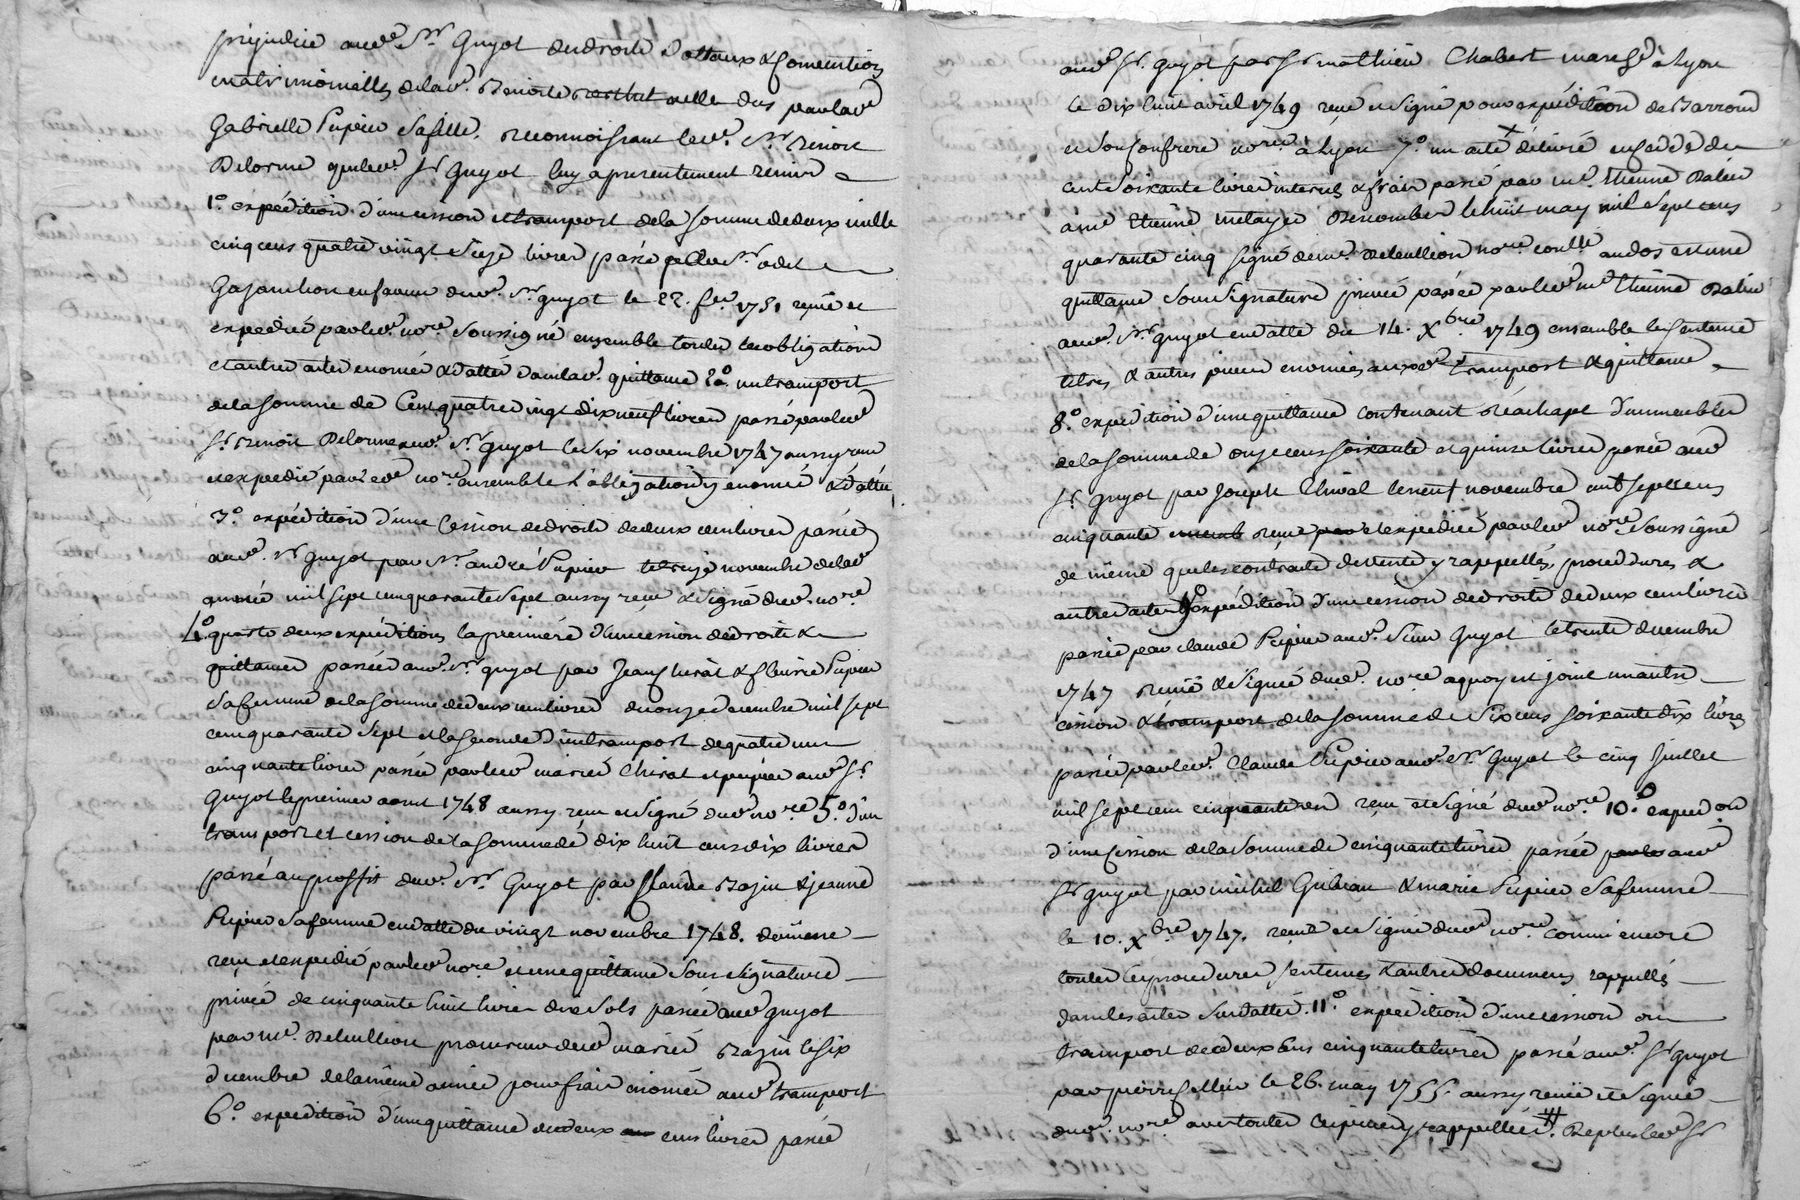 préjudice aud. Sr. Guyot des droits dottaux & conventions
matrimonielles de lad. Benoite
Gabrielle Pupier sa fille, reconnoissant led. Sr. Benoit
Delorme que led. Sr Guyot luy a présentement remis
1.° expédition d'une cession et transport de la somme de deux mille
cinq cens quatre vingt seize livres passé
en faveur dud. Sr. Guyot le 22. fer. 1751 reçue et
expedié par led. nore. soussigné ensemble toutes les obligations
et autres actes enoncés & dattés dans lad. quittance 2°. un transport
de la somme de cent quatre vingt dix neuf livres passé par led.
Sr. Benoit Delorme aud. Sr Guyot le six novembre 1747 aussy reçu
et expedié par led. nore. ensemble l'obligation y enoncé & datté,
3.° expédition d'une cession de droits de deux cens livres passée
aud. Sr Guyot par Sr. andré Pupier le treize novembre de lad.
année mil sept cens quarante sept aussy reçue & signé dud. nore.
4.° quarto deux expeditions la première d'une cession de droits &
quittances passée aud. Sr. guyot par Jean & fleurie Pupier
sa femme de la somme de deux cens livres du onze decembre mil sept
cens quarante sept et la seconde d'un transport de quatre cens
cinquante livres passé par led. mariés Chirat et pupier aud. Sr
Guyot le premier aout 1748 aussy reçu et signé dud. nore 5.° d'un
transport et cession de la somme de dix huit cens dix livres
passé au proffit dud. Sr. Guyot par Claude Bazin & jeanne
Pupier sa femme en datte du vingt novembre 1748. de même
reçu et expedié par led. nore. et une quittance sous signature
privée de cinquante huit livres dix sols passée aud. guyot
par me. Detullion procureur desd. mariés Bazin le six
decembre de la même année pour frais enoncés aud. transport
6.° expedition d'une quittance de deux cens livres passée
aud. Sr. Guyot par Sr mathieu Chabert march. à Lyon
le dix huit avril 1749 reçue et signé pour expédition de Barroud
et son confrere nores à Lyon 7.° un acte délivré en
cents soixante livres interets & frais passé par me. Etienne
à me Etienne le huit may mil sept cens
quarante cinq signé de me. Detullion nore. contllé au dos et une
quittance sous signature privée passée par led. me Etienne
aud. Sr. Guyot en datte du 14. Xbre 1749 ensemble les sentence
titres & autres pieces enoncées auxd. transport & quittance
8.° expedition d'une quittance contenant réachapt d'immeubles
de la somme de onze cens soixante et quinze livres passée aud.
Sr Guyot par Joseph le neuf novembre mil sept cens
cinquante reçue et expediée par led. nore. soussigné
de même que les contracts de vente y rappellés, procedures &
autres actes 9° expédition d'une cession de droits de deux cens livres
passée par claude Pupier aud. sieur Guyot le trente decembre
1747 reçue & signée dud. nore a quoy est joint un autre
cession & transport de la somme de six cens soixante dix livres
passée par led. Claude Pupier aud. Sr Guyot le cinq juillet
mil sept cens cinquante reçu et signé dud. nore 10.° expedon
d'une cession de la somme de cinquante livres passée aud.
Sr guyot par michel & marie Pupier sa femme
le 10. Xbre 1747. reçue et signé dud. nore. comm'encore
toutes les procedures sentences & autres documens rappellés
dans les actes sus dattés. 11.° expédition d'une cession ou
transport de deux cens cinquante livres passé aud. Sr guyot
par pierre le 26. may 1755. aussy reçue et signée
dud. nore. avec toutes les pieces y rappellées. De plus led. Sr